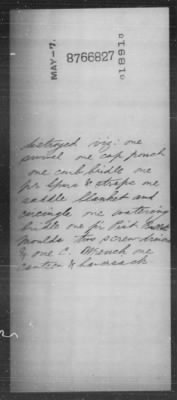 MAY-7.
8766827
1891
destroyed viz: one
swivel one cap pouch
one curb bridle one
pr Spurs & straps one
saddle blanket and
surcingle one watering
bridle one pr Pist
Moulds two screw drivers
& one C. Wrench one
canteen & haversack